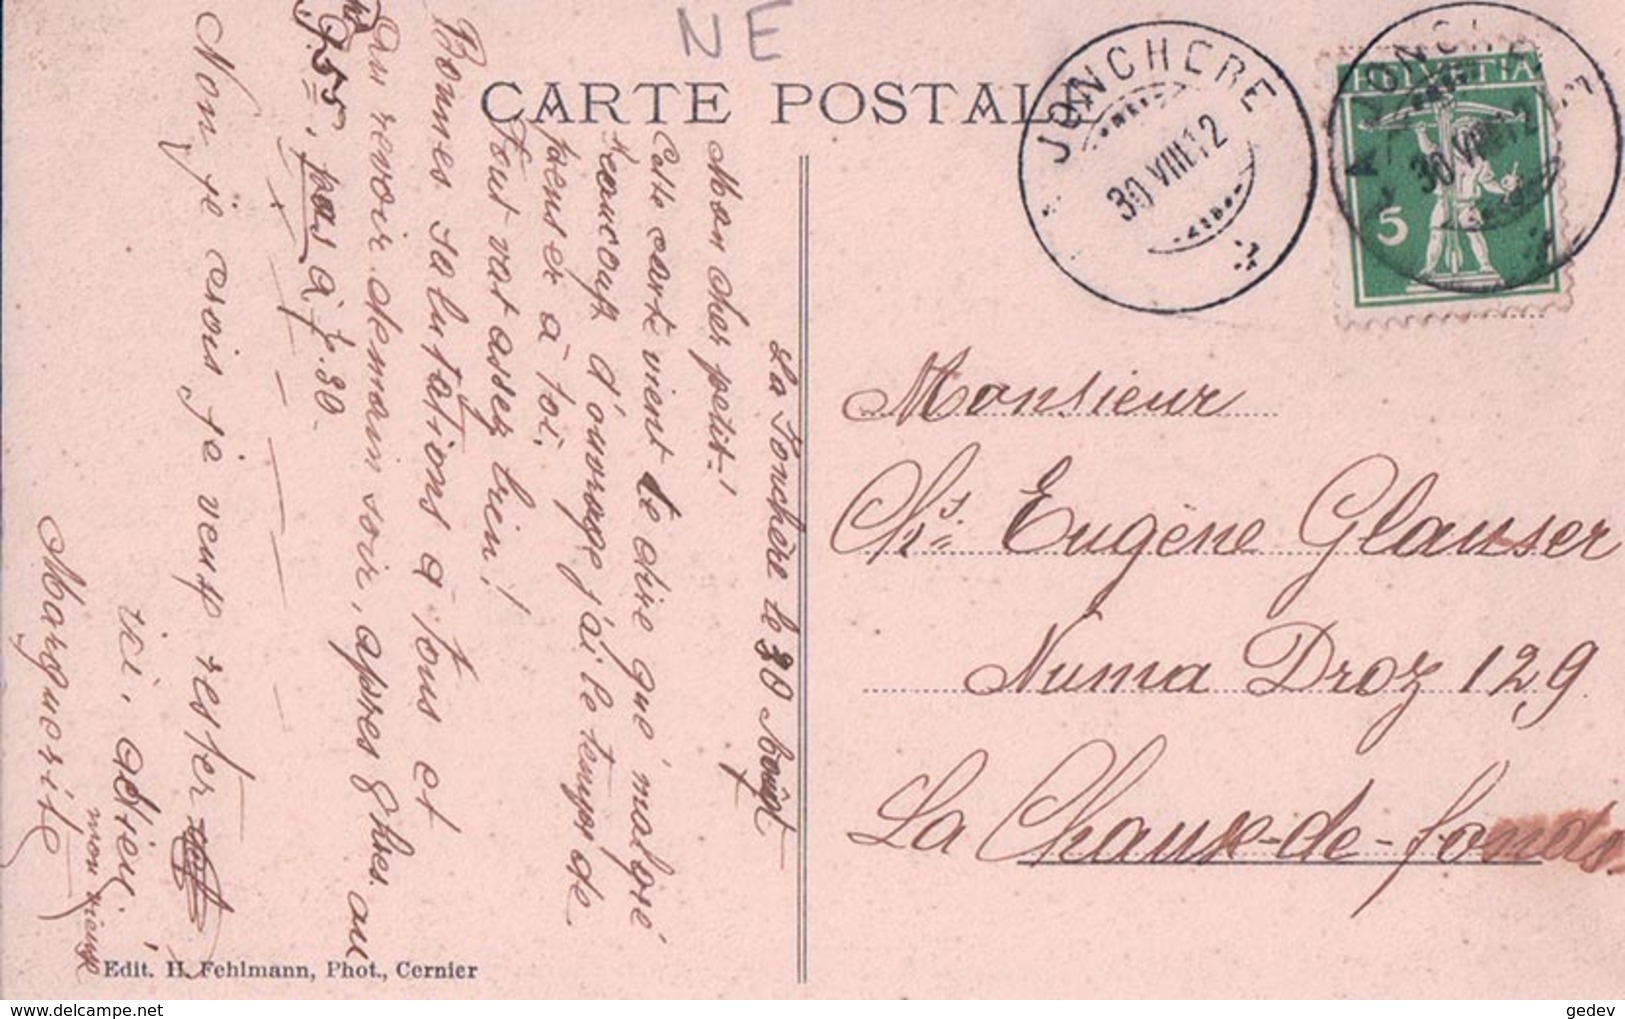 NE
CARTE POSTALE
JONCHERE
30 VIII 12
LA JONCHERE
30 VIII 12
HELVETIA
5
La Jonchère le 30 Août
Mon cher petit!
Cette carte vient te dire que malgré
beaucoup d'ouvrage j'ai le temps de
penser à toi.
Tout vat assez bien!
Bonnes salutations à tous et
au revoir demain soir, après 8 hres. au
7.55, pas à 7.30
Non je crois, je veux rester
ici, adieu
mon vieux
Marguerite
Monsieur
Chs. Eugène Glauser
Numa Droz 129
La Chaux-de-fonds
Edit. H. Fehlmann, Phot., Cernier
gedev
www.delcampe.net